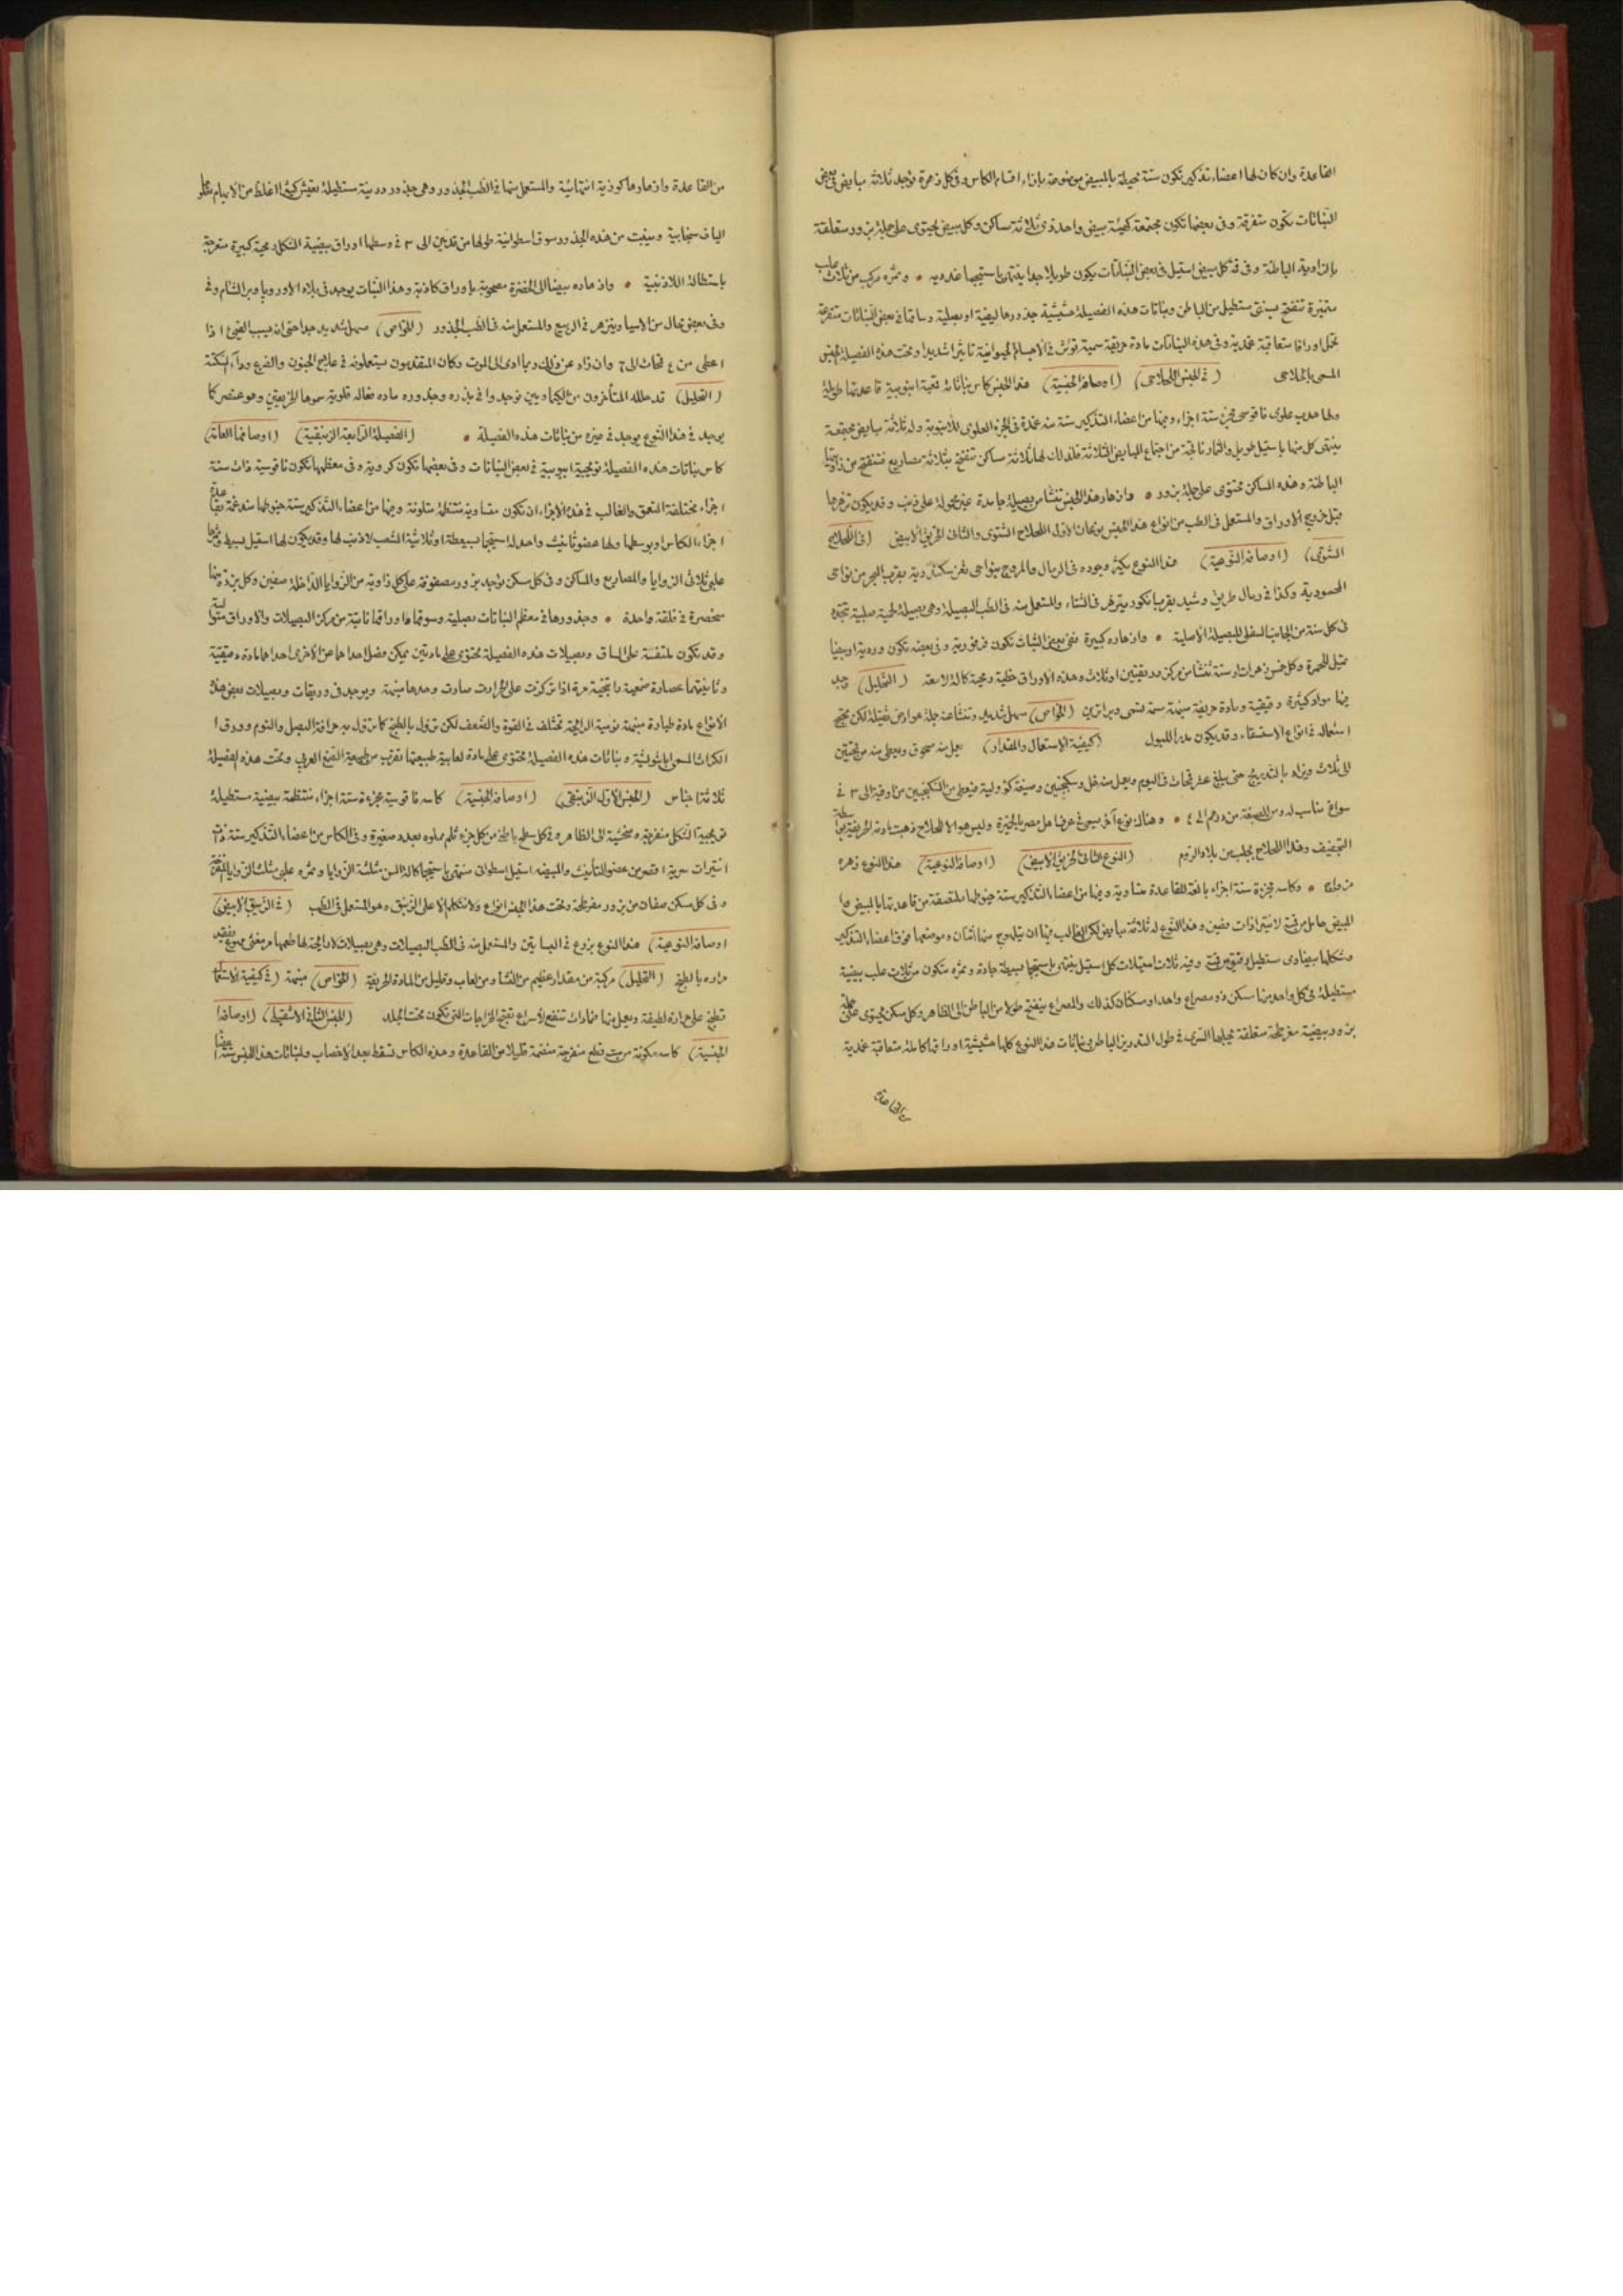 القاعدة وان كان لها اعضاء تذكير تكون ستة محيطة بالمبيض موضوعة بازاء اقسام الكاس وفي كل زهرة توجد ثلاثة مبايض في بعض
النباتات تكون متفرقة وفي بعضها تكون مجتمعة كهيئة مبيض واحد ذي ثلاثة مساكن وكل مبيض يحتوي على جملة بزور متعلقة
بالزاوية الباطنة وفي قمة كل مبيض استيل في بعض النباتات يكون طويلا جدا ينتهي باستيجما غددية • وثمره مركب من ثلاث علب
متميزة تنفتح بسنتي مستطيل من الباطن ونباتات هذه الفصيلة حشيشية جذورها ليفية او بصلية وساقها في بعض النباتات متفرعة
تحمل اوراقا متعاقبة غمدية وفي هذه النباتات مادة حريفة سمية تؤثر في الاجسام الحيوانية تاثيرا شديدا وتحت هذه الفصيلة الجنس
المسمى باللحلاحي (في الجنس اللحلاحي) (اوصافه الجنسية) هذا الجنس كاس نباتاته قمعية انبوبية قاعدتها طويلة
ولها هدب علوي ناقوسي مجزء ستة اجزاء وفيها من اعضاء التذكير ستة مندغمة في الجزء العلوي للانبوبة وله ثلاثة مبايض مجتمعة
ينتهي كل منها باستيل طويل والثمار ناتجة من اجتماع المبايض الثلاثة فلذلك لها ثلاثة مساكن تنفتح بثلاثة مصاريع فتنفتح من زاويتها
الباطنة وهذه المساكن تحتوي على جملة بزور • وازهار هذا الجنس تنشأ من بصيلة جامدة غير محمولة على ذنيب وقد يكون تزهرها
قبل خروج الاوراق والمستعمل في الطب من انواع هذا الجنس نوعان الاول اللحلاح الشتوي والثاني الخربق الابيض (في اللحلاح
الشتوي) (اوصافه النوعية) هذا النوع يكثر وجوده في الرمال والمروج بنواحي ثغر سكندرية بقرب البحر من نواحي
المحمودية وكذا في رمال طريق رشيد بقرب ابا كود ويزهر في الشتاء والمستعمل منه في الطب البصيلة وهي بصيلة لحمية صلبة تتجدد
في كل سنة من الجانب السفلي للبصيلة الاصلية • وازهاره كبيرة ففي بعض النبات تكون فرفورية وفي بعضه تكون وردية او بيضا
تميل للحمرة وكل خمس زهرات او ستة تنشأ من مركز وريقتين او ثلاث وهذه الاوراق خطية رمحية كاللة لامعة (التحليل) وجد
فيها مواد كثيرة دقيقية ومادة حريفة مسهمة سمة تسمى ويراترين (الخواص) مسهل شديد وتنشأ عنه جملة عوارض ثقيلة لكن نجح
استعماله في انواع الاستسقاء وقد يكون مدرا للبول (كيفية الاستعمال والمقدار) يعمل منه مسحوق ويعطى منه من قمحتين
الى ثلاث ويزاد بالتدريج حتى يبلغ عشر قمحات في اليوم ويعمل منه خل وسكنجبين وصبغة كؤولية فيعطى من السكنجبين من اوقية الى ٣ في
سواغ مناسب له ومن الصبغة من درهم الى ٤ • وهناك نوع آخر يسمى في عرف اهل مصر بالخميرة وليس هو الا لحلاح ذهبت مادته الحريفة
التجفيف وهذا اللحلاح يجلب من بلاد الروم (النوع الثاني الخربق الابيض) (اوصافه النوعية) هذا النوع زهره
مزواج • وكاسه مجزءة ستة اجزاء بالغة للقاعدة متساوية وفيها من اعضاء التذكير ستة خيوطها ملتصقة من قاعدتها بالمبيض
المبيض حامل
وشكلها بيضاوي مستطيل وفيه ثلاث استيلات كل استيل ينتهي باستيجما بسيطة حادة وثمره متكون من ثلاث علب بيضية
مستطيلة في كل واحد منها مسكن ذو مصراع واحد او مسكنان كذلك والمصراع ينفتح طولا من الباطن الى الظاهر وكل مسكن يحتوي على جملة
بزور بيضية مفرطحة متعلقة بحبلها السري في طول التدريز الباطن ونباتات هذا النوع كلها حشيشية اوراقها كاملة متعاقبة غمدية
من القاعدة وازهارها كوزية انتهائية والمستعمل منها في الطب الجذور وهي جذور درنية مستطيلة
الياف سنجابية وينبت من هذه الجذور سوق اسطوانية طولها من قدمين الى ٣ في وسطها اوراق بيضية الشكل رمحية كبيرة منفرجة
باستطالة اللاذنيبية • وازهاره بيضا الى الخضرة مصحوبة باوراق كاذبة وهذا النبات يوجد في بلاد الاوروبا وبر الشام وفي
وفي بعض محال من الاسيا ويتزهر في الربيع والمستعمل منه في الطب الجذور (الخواص) مسهل شديد جدا حتى انه يسبب القيء اذا
اعطي من ٤ قمحات الى ٦ وان زاد عن ذلك ربما ادى الى الموت وكان المتقدمون يستعملونه في علاج الجنون والصرع وداء السكتة
(التحليل) قد حلله المتأخرون من الكيماويين فوجدوا في بذره وجذوره مادة فعالة قلوية سموها الخربقين وهو عنصر كما
يوجد في هذا النوع يوجد في غيره من نباتات هذه الفصيلة • (الفصيلة الرابعة الزنبقية) (اوصافها العامة)
كاس نباتات هذه الفصيلة تويجية انبوبية في بعض النباتات وفي بعضها تكون كروية وفي معظمها تكون ناقوسية ذات ستة
اجزاء مختلفة التعمق والغالب في هذه الاجزاء ان تكون متساوية منتظمة متلونة وفيها من اعضاء التذكير ستة خيوطها مندغمة بقاعدة
اجزاء الكاس او بوسطها ولها عضو تانيث واحد له استيجما بسيطة او ثلاثية الشعب لا ذنب لها وقد يكون لها استيل بسيط وثمرها
علبي ثلاثي الزوايا والمصاريع والمساكن وفي كل مسكن توجد بزور مصفوفة على كل زاوية من الزوايا الداخلة صفين وكل بزرة منها
منحصرة في غلقة واحدة • وجذورها في معظم النباتات بصلية وسوقها واوراقها نابتة من مركز البصيلات والاوراق متوالية
وقد تكون ملتفة على الساق وبصيلات هذه الفصيلة تحتوي على مادتين يمكن فصل احداهما عن الاخرى احداهما مادة دقيقية
وثانيتهما عصارة صمغية راتنجية مرة اذا تركزت على الحرارة صارت وحدها منبهة ويوجد في وريقات وبصيلات بعض هذه
الانواع مادة طيارة منبهة نومية الرائحة تختلف في القوة والضعف لكن تزول بالطبخ كما تزول به حرافة البصل والثوم وورق ا
الكراث المسمى ابا شوشة ونباتات هذه الفصيلة تحتوي على مادة لعابية طبيعتها تقرب من طبيعة الصمغ العربي وتحت هذه الفصيلة
ثلاثة اجناس (الجنس الاول الزنبقي) (اوصافه الجنسية) كاسه ناقوسية مجزءة ستة اجزاء منتظمة بيضية مستطيلة
تويجية الشكل منفرجة ومنحنية الى الظاهر وفي كل سطح باطن من كل جزء ثلم مملوء بغدد صغيرة وفي الكاس من اعضاء التذكير ستة ذات
انتيرات سرية اقصر من عضو التأنيث والمبيضه استيل اسطواني منتهي باستيجما كاللة السن مثلثة الزوايا وثمره علبي مثلث الزوايا
وفي كل مسكن صفان من بزور مفرطحة وتحت هذا الجنس انواع ولا نتكلم الا على الزنبق وهو المستعمل في الطب (في الزنبق الابيض)
اوصافه النوعية) هذا النوع يزرع في البساتين والمستعمل منه في الطب البصيلات وهي بصيلات لا رائحة لها طعمها مر مغثي
مراره بالطبخ (التحليل) مركبة من مقدار عظيم من النشا ومن لعاب وقليل من المادة الحريفة (الخواص) منبهة (في كيفية الاستعمال
تطبخ على حرارة لطيفة ويعمل منها ضمادات تنفع لاسراع تفتح الخراجات التي تكون تحت الجلد (الجنس الثاني الاشقيلي) (اوصافه ا
الجنسية) كاسه مكونة من ست قطع منفرجة منضمة قليلا من القاعدة وهذه الكاس تسقط بعد الاخصاب ولنباتات هذا الجنس ستة